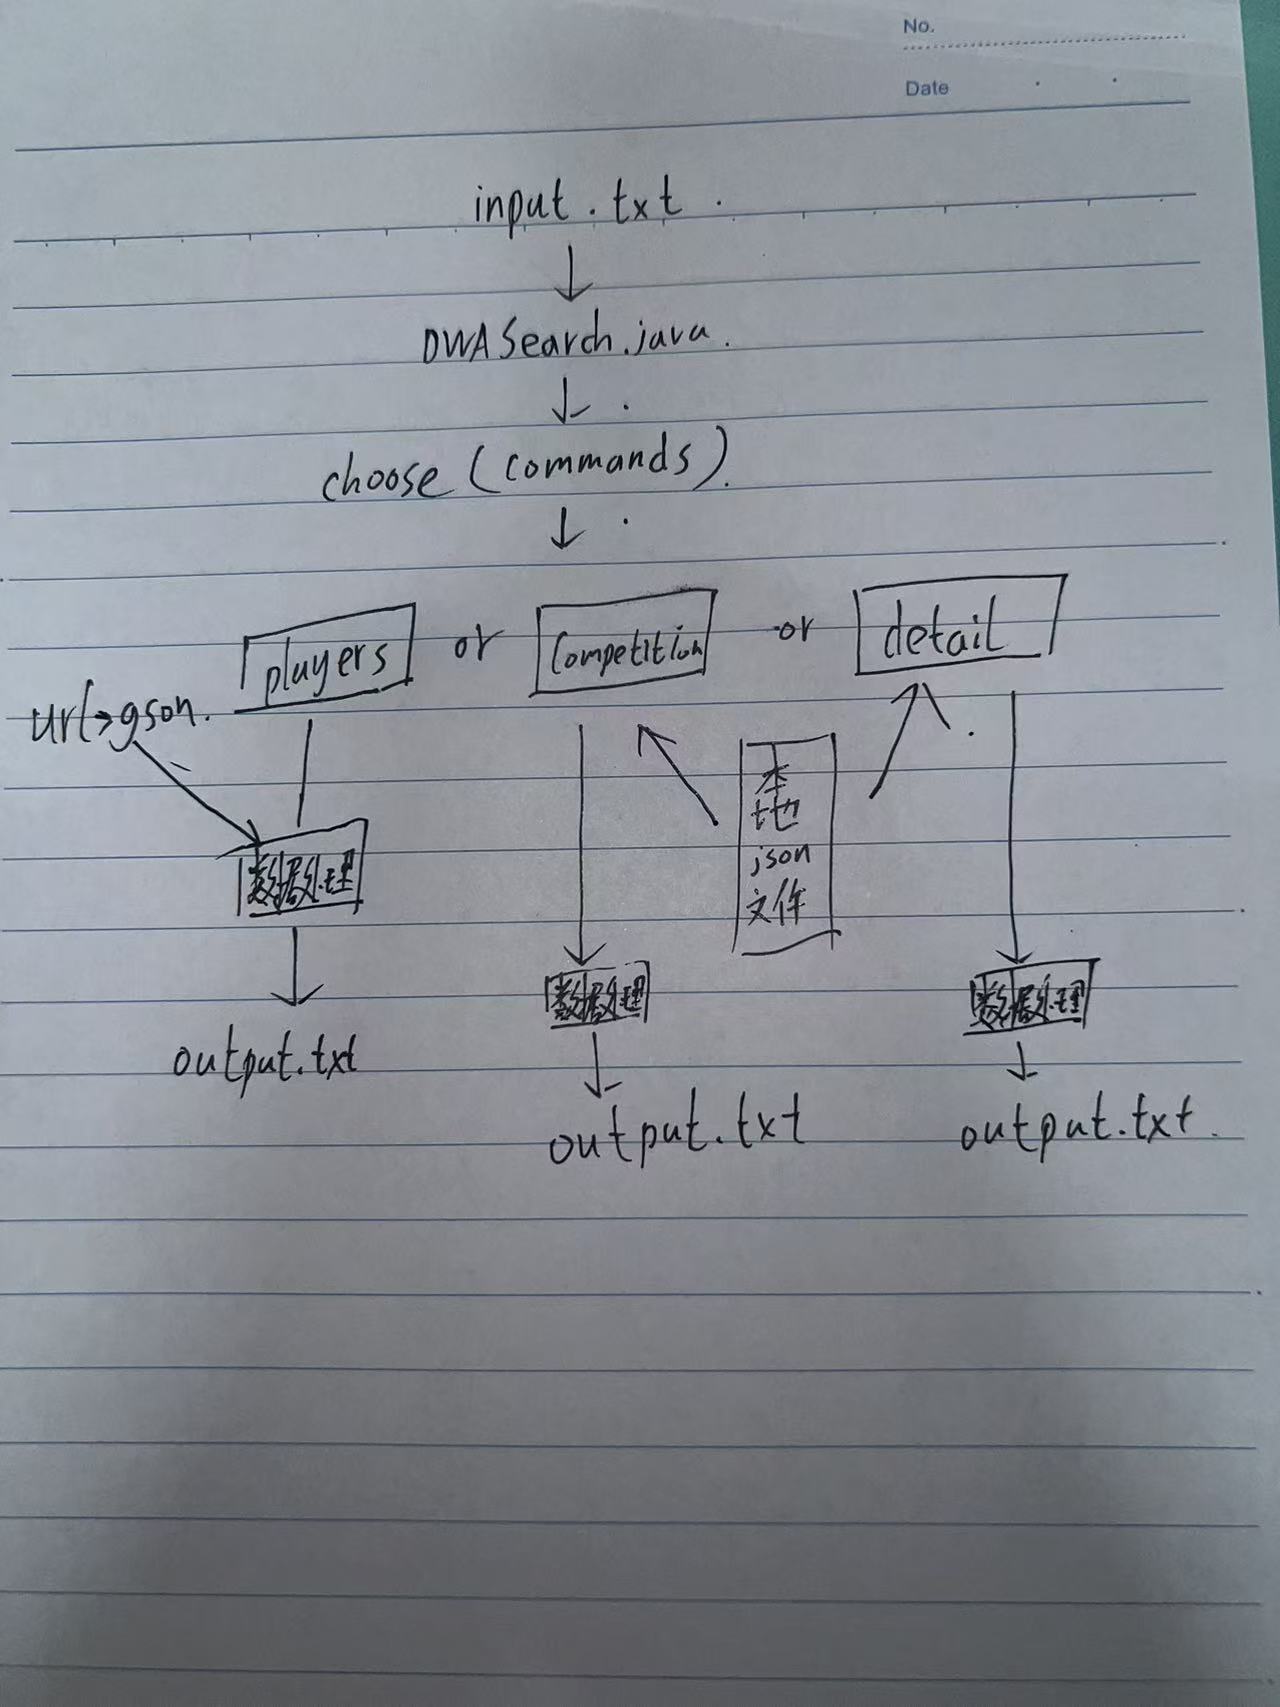 No.
Date
input.txt
DWASearch.java.
choose (commands)
players or Competition or detail
url→gson.
本
地
json
文件
数据处理
数据处理
数据处理
output.txt
output.txt
output.txt